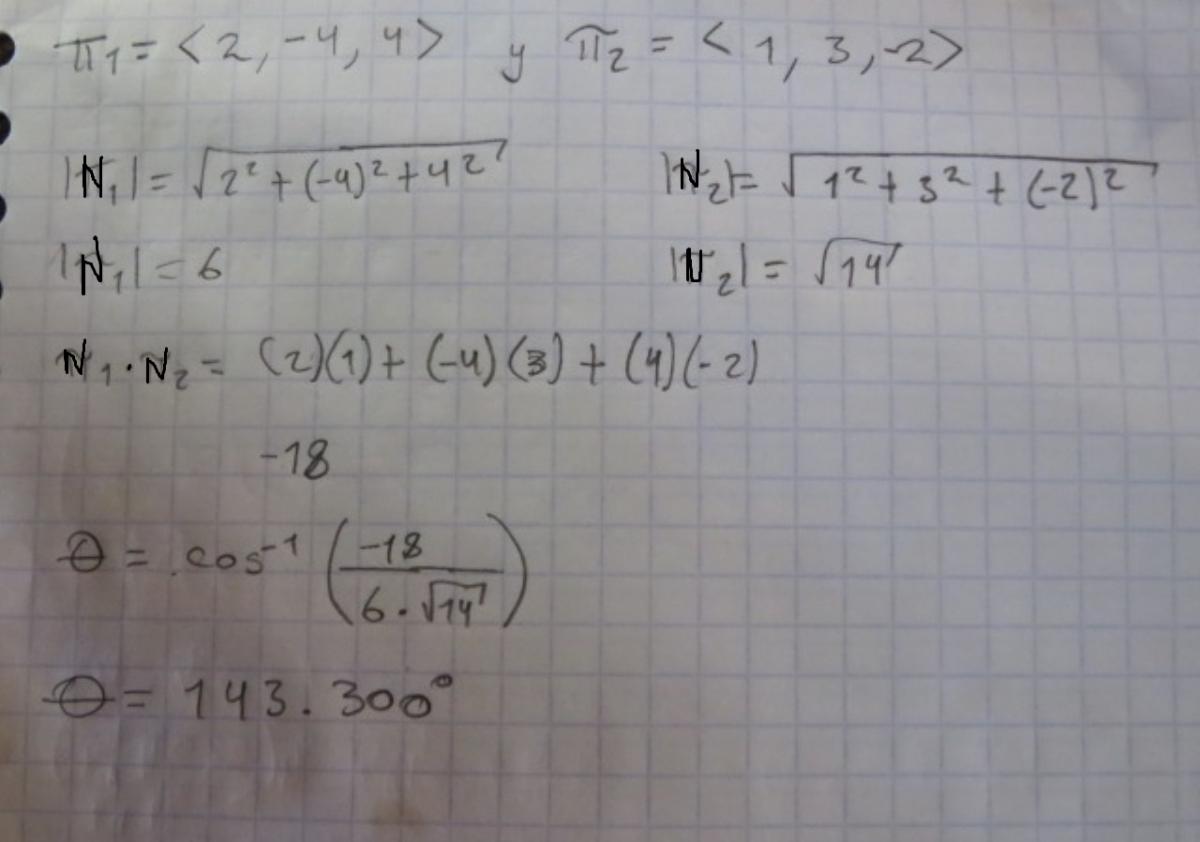 π₁ = <2, -4, 4> y π₂ = < 1, 3, -2>
|N₁| = √(2² + (-4)² + 4²) |N₂| = √(1² + 3² + (-2)²)
|N₁| = 6 |N₂| = √14
N₁ · N₂ = (2)(1) + (-4)(3) + (4)(-2)
-18
θ = cos⁻¹ (-18 / 6 · √14)
θ = 143.300°